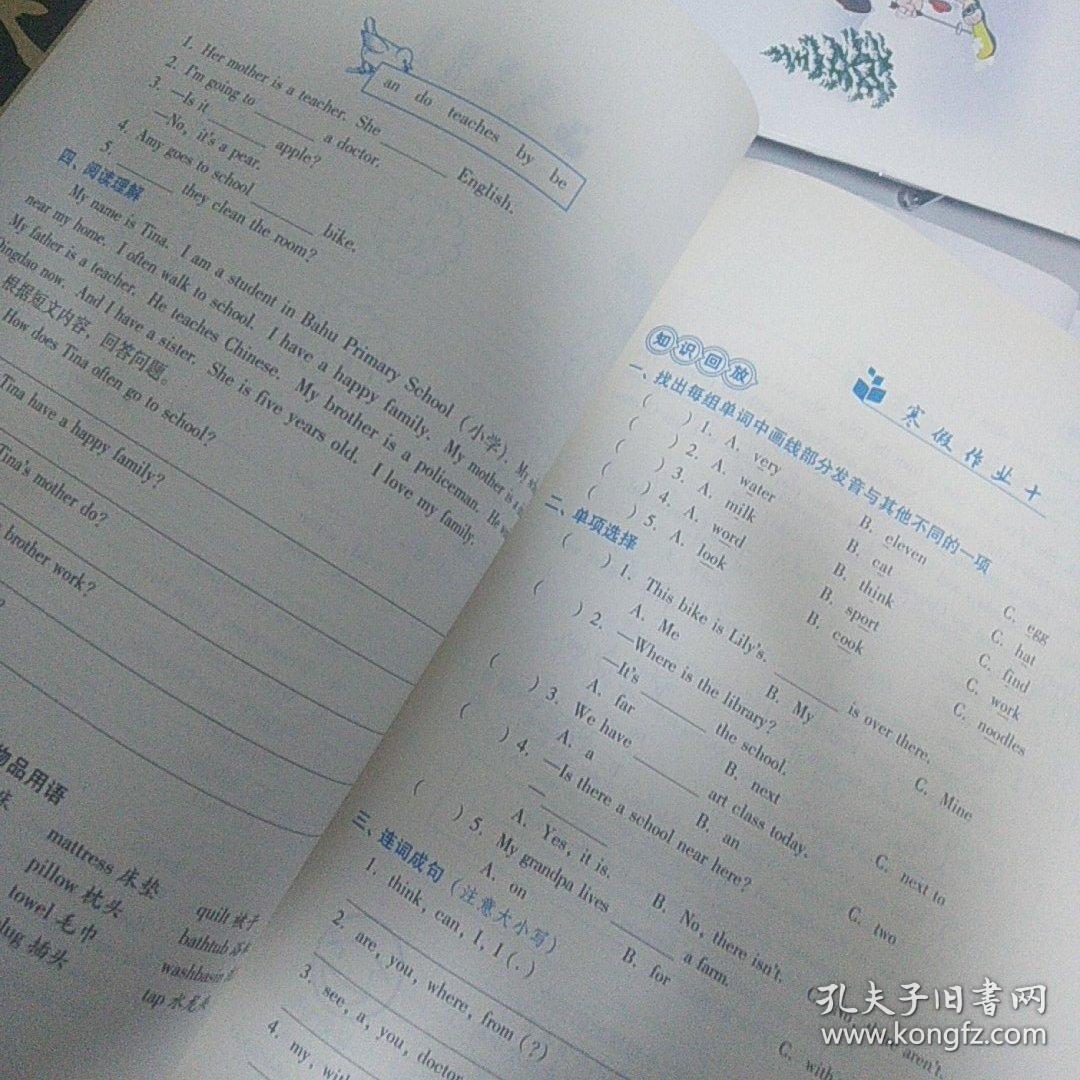 an do teaches by be
1. Her mother is a teacher. She ______ English.
2. I'm going to ______ a doctor.
3. —Is it ______ apple?
—No, it's a pear.
4. Amy goes to school ______ bike.
5. ______ they clean the room?
四、阅读理解
My name is Tina. I am a student in Bahu Primary School (小学). My
near my home. I often walk to school. I have a happy family. My mother is a
My father is a teacher. He teaches Chinese. My brother is a policeman. He
now. And I have a sister. She is five years old. I love my family.
根据短文内容，回答问题。
How does Tina often go to school?
Tina have a happy family?
Tina's mother do?
brother work?
?
物品用语
床
mattress 床垫
pillow 枕头 quilt 被子
towel 毛巾 bathtub
插头 washbasin
tap
寒假作业十
知识回放
一、找出每组单词中画线部分发音与其他不同的一项
( ) 1. A. very B. eleven C. egg
( ) 2. A. water B. cat C. hat
( ) 3. A. milk B. think C. find
( ) 4. A. word B. sport C. work
( ) 5. A. look B. cook C. noodles
二、单项选择
( ) 1. This bike is Lily's. ______ is over there.
A. Me B. My C. Mine
( ) 2. —Where is the library?
—It's ______ the school.
A. far B. next C. next to
( ) 3. We have ______ art class today.
A. a B. an C. two
( ) 4. —Is there a school near here?
— ______
A. Yes, it is. B. No, there isn't. aren't.
( ) 5. My grandpa lives ______ a farm.
A. on B. for C. with
三、连词成句（注意大小写）
1. think, can, I, I (.)
2. are, you, where, from (?)
3. see, a, you, doctor
4. my,
孔夫子旧书网
www.kongfz.com